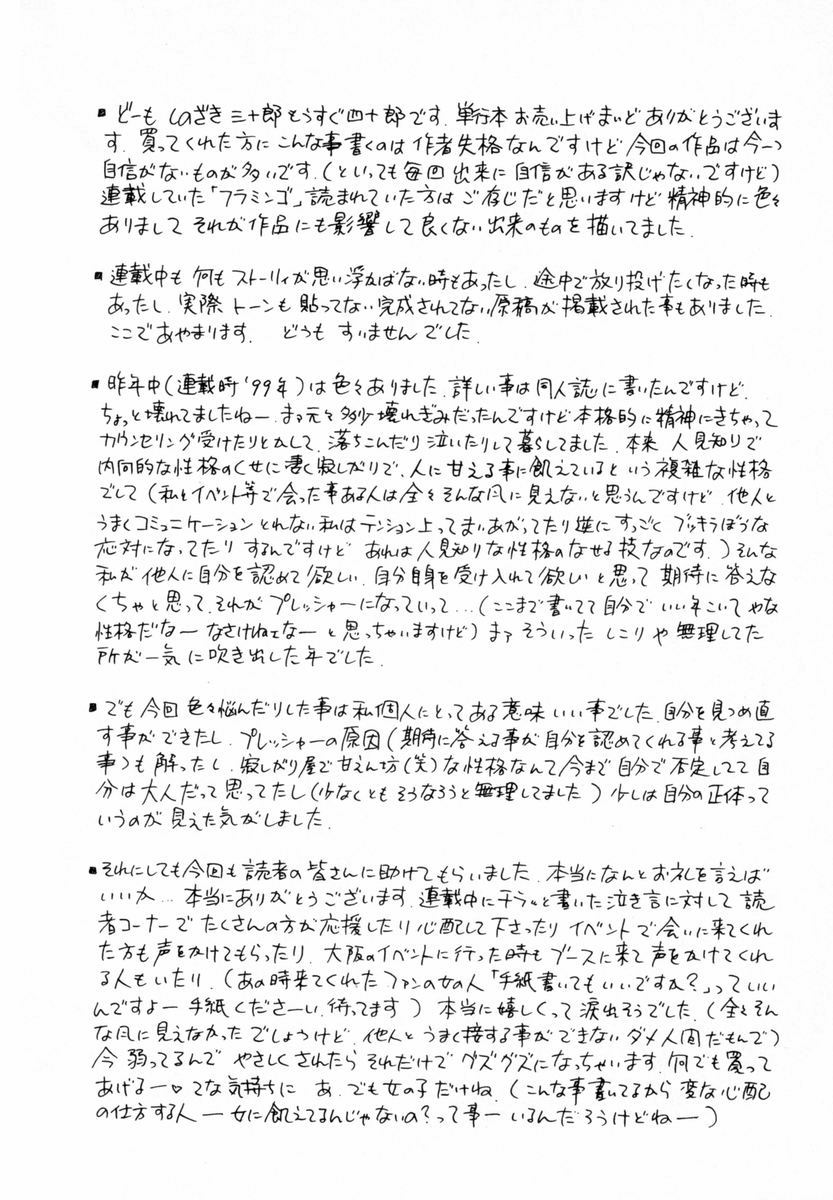 ▪どーも しのざき三十郎もうすぐ四十郎です.単行本お売い上げまいどありがとうございま
す.買ってくれた方にこんな事書くのは作者失格なんですけど今回の作品は今一つ
自信がないものが多いです.(といっても毎回出来に自信がある訳じゃないですけど)
連載していた「フラミンゴ」読まれていた方はご存じだと思いますけど精神的に色々
ありまして それが作品にも影響して良くない出来のものを描いてました.
▪連載中も何もストーリィが思い浮かばない時もあったし.途中で放り投げたくなった時も
あったし.実際トーンも貼ってない完成されてない原稿が掲載された事もありました.
ここであやまります. どうもすいませんでした.
▪昨年中(連載時'99年)は色々ありました.詳しい事は同人誌に書いたんですけど.
ちょっと壊れてましたねー.まァ元々多少壊れぎみだったんですけど本格的に精神にきちゃって
カウンセリング受けたりとかして.落ちこんだり泣いたりして暮らしてました.本来 人見知りで
内向的な性格のくせに凄く寂しがりで、人に甘える事に飢えているという複雑な性格
でして(私とイベント等で会った事ある人は全々そんな風に見えないと思うんですけど.他人と
うまくコミュニケーションとれない私はテンション上ってまいあがってたり逆にすっごくブッキラぼうな
応対になってたりするんですけど あれは人見知りな性格のなせる技なのです.)そんな
私が他人に自分を認めて欲しい.自分自身を受け入れて欲しいと思って 期待に答えな
くちゃと思って.それがプレッシャーになっていって…(ここまで書いてて自分でいい年こいてやな
性格だなー なさけねェなーと思っちゃいますけど)まァそういった しこりや無理してた
所が一気に吹き出した年でした.
▪でも今回色々悩んだりした事は私個人にとってある意味いい事でした.自分を見つめ直
す事ができたし.プレッシャーの原因(期待に答える事が自分を認めてくれる事と考えてる
事)も解ったし.寂しがり屋で甘えん坊(笑)な性格なんて今まで自分で不定してて自
分は大人だって思ってたし(少なくともそうなろうと無理してました)少しは自分の正体って
いうのが見えた気がしました.
▪それにしても今回も読者の皆さんに助けてもらいました.本当になんとお礼を言えば
いいか… 本当にありがとうございます.連載中にチラッと書いた泣き言に対して読
者コーナーでたくさんの方が応援したり心配して下さったり イベントで会いに来てくれ
た方も声をかけてもらったり.大阪のイベントに行った時もブースに来て声をかけてくれ
る人もいたり.(あの時来てくれたファンの女の人「手紙書いてもいいですか?」っていい
んですよー 手紙くださーい.待ってます)本当に嬉しくって涙出そうでした.(全々そん
な風に見えなかったでしょうけど.他人とうまく接する事ができないダメ人間だもんで)
今 弱ってるんで やさしくされたらそれだけでグズグズになっちゃいます.何でも買って
あげるー♡てな気持ちに あ.でも女の子だけね.(こんな事書いてるから変な心配
の仕方する人 ー女に飢えてるんじゃないの?って事ー いるんだろうけどねー)